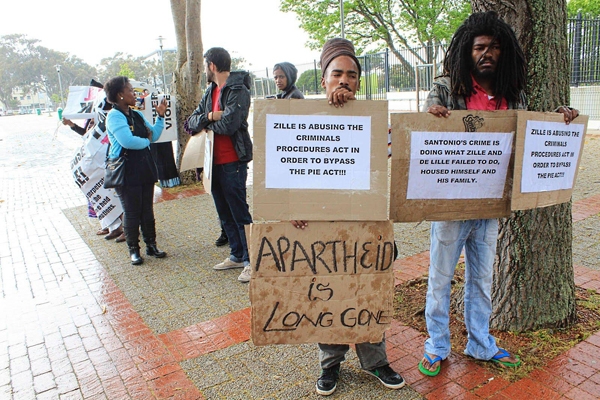 ZILLE IS ABUSING THE
CRIMINALS
PROCEDURES ACT IN
ORDER TO BYPASS
THE PIE ACT!!!
APARTHEID
is
LONG GONE
SANTONIO'S CRIME IS
DOING WHAT ZILLE AND
DE LILLE FAILED TO DO,
HOUSED HIMSELF AND
HIS FAMILY.
ZILLE IS ABUSING
THE CRIMINALS
PROCEDURES ACT IN
ORDER TO BYPASS
THE PIE ACT!!!